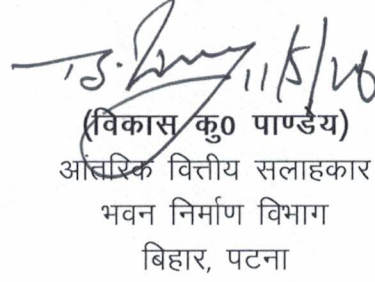 11/5/26
(विकास कु0 पाण्डेय)
आंतरिक वित्तीय सलाहकार
भवन निर्माण विभाग
बिहार, पटना